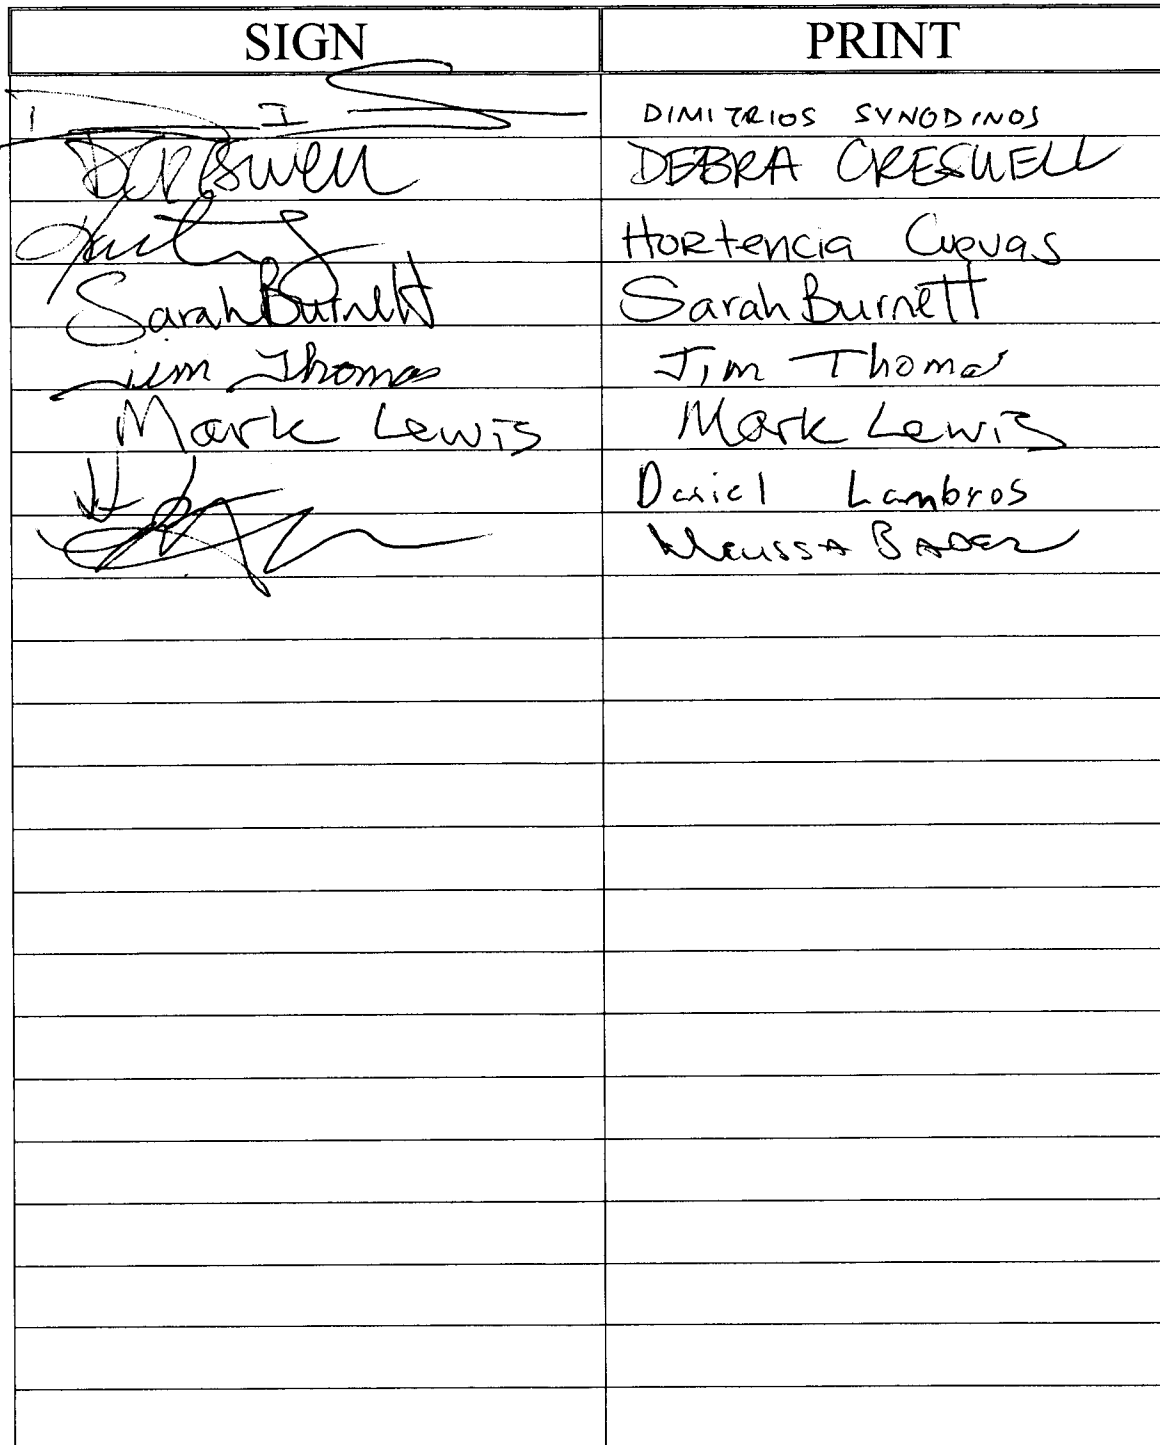 SIGN PRINT
DIMITRIOS SYNODINOS
DEBRA CRESWELL
Hortencia Cuevas
Sarah Burnett Sarah Burnett
Jim Thomas Jim Thomas
Mark Lewis Mark Lewis
Daniel Lambros
Melissa BADER